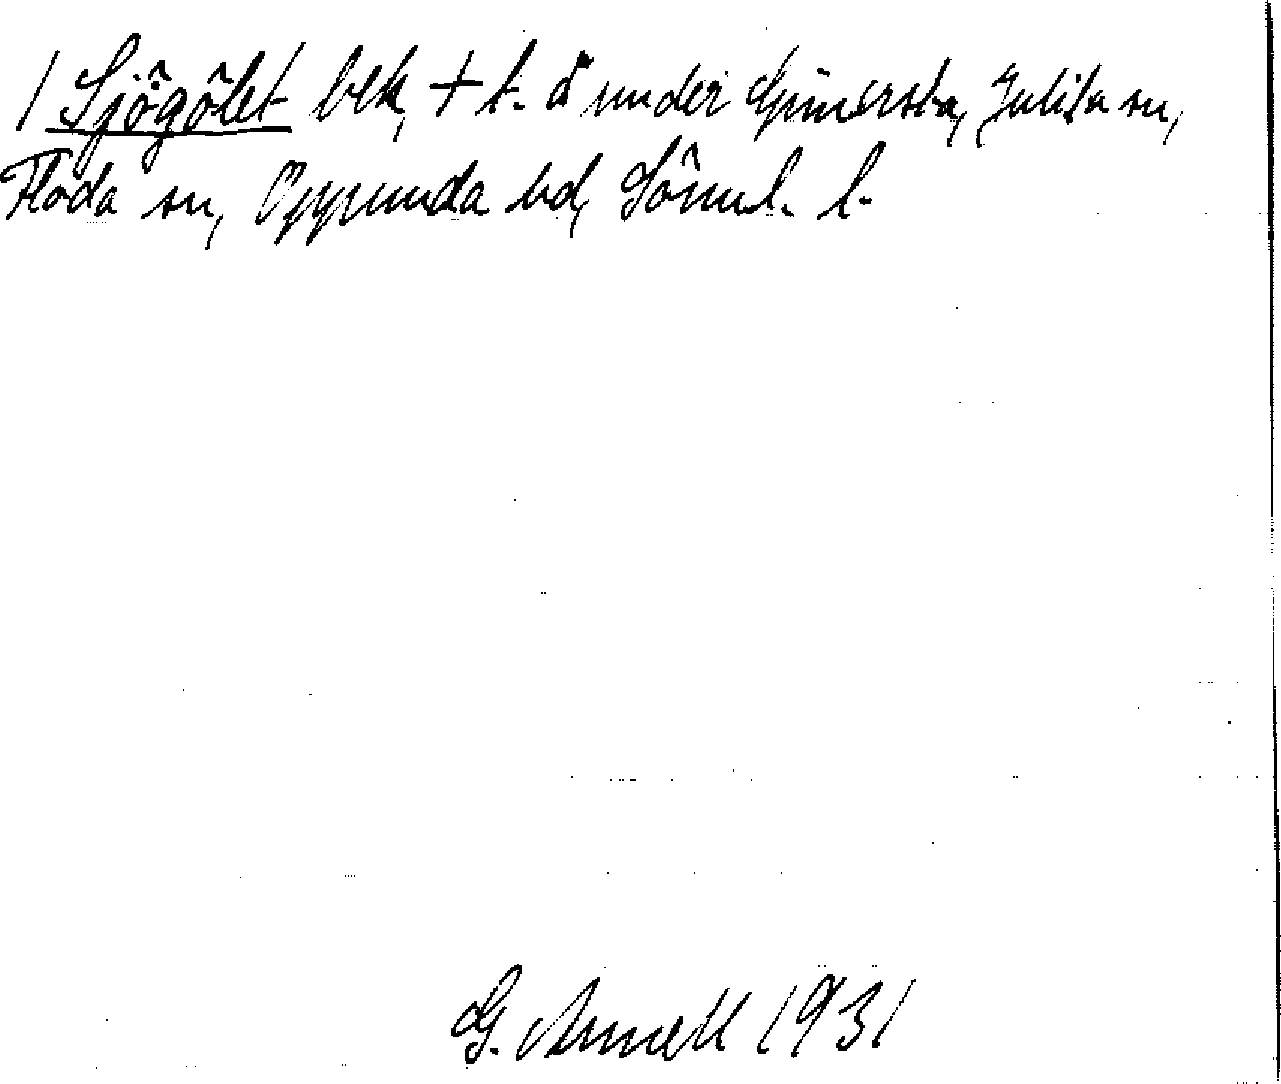 / Sjögölet bek, + t. å under Gimersta, Julita sn,
Floda sn, Oppunda hd, Sörml. l.
G. Arnell 1931